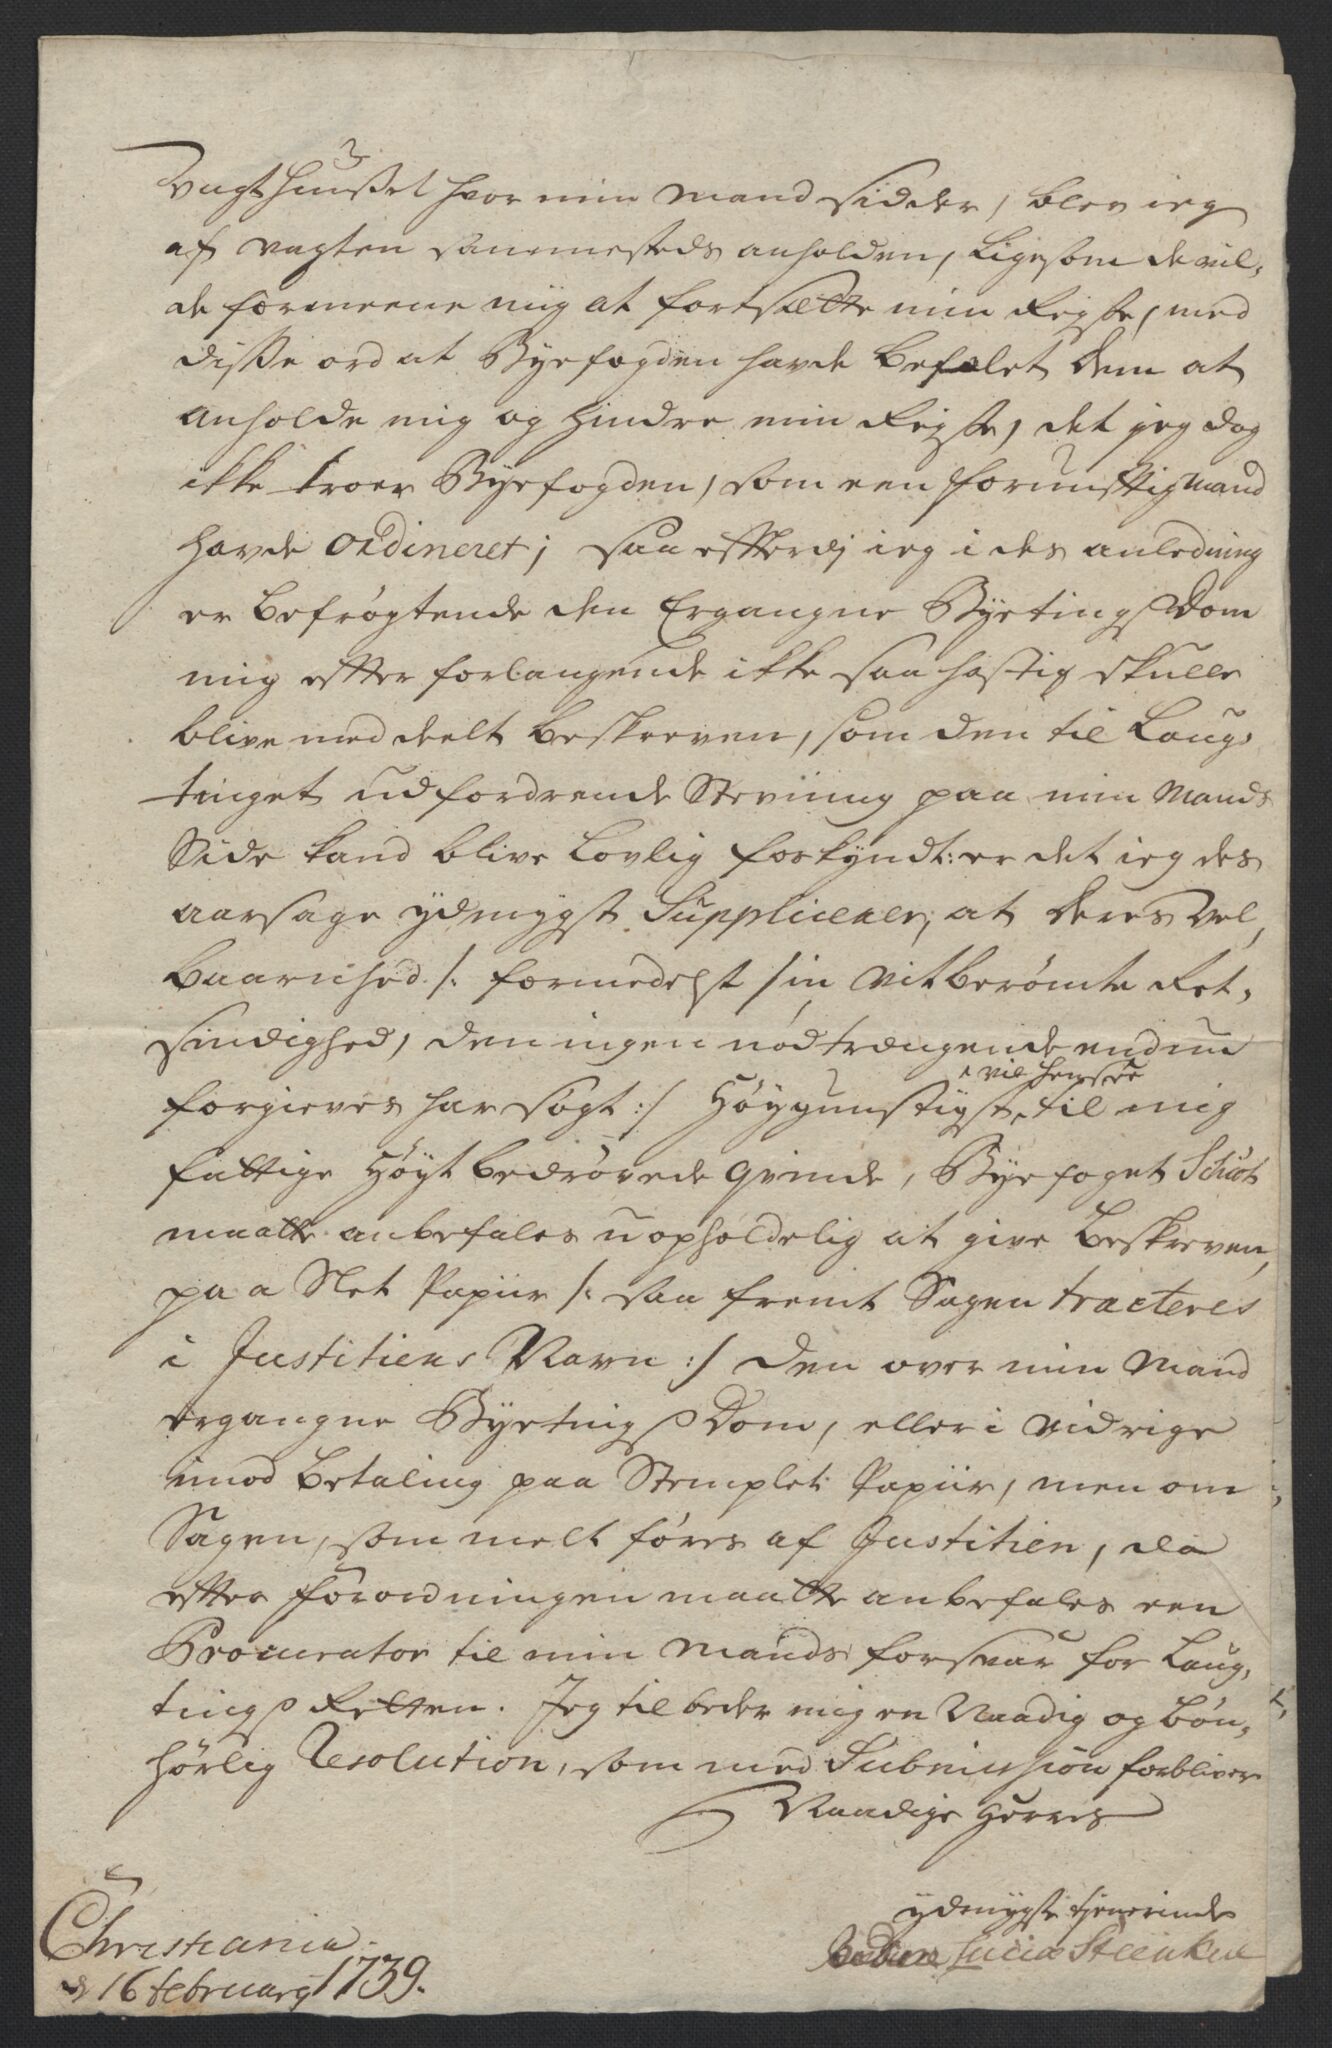 Vagthuusset hvor min Mand sidder, blev ieg
af vagten sammesteds anholden, Ligesom de vil-
de formeene miig at fortsætte min Reysse, med
disse ord at Byefogden havde befalet dem at
anholde mig og hindre min Reysse, det jeg dog
ikke troer Byefogden, som een fornufftig Mand
havde ordineret; saa efterdj ieg i des anledning
er befrøgtende den Ergangne Byetings Dom
mig efter forlangende ikke saa hastig skulle
blive meddeelt beskreven, som den til Laug-
tinget udfordrende Stevning paa min Mands
Side kand blive Lovlig forkyndt: er det ieg des
aarsage ydmygst Supplicerer, at Deres Vel-
baarenhed /: formedelst sin vitberømte Ret-
sindighed, den ingen nødtrængende endnu
forgieves har søgt :/ Høygunstigst vil hensee til mig
fattige Høyt bedrøvede Qvinde, Byefoget Schiøt
maatte anbefales uopholdelig at give beskreven,
paa Slet Papiir /: saa fremt Sagen tracteres
i Justitiens Navn :/ den over min Mand
ergangne Byetings Dom, eller i vidrige
imod betaling paa Stemplet Papiir, men om
Sagen, som melt føres af Justitien, da
efter Forordningen maatte anbefales een
Procurator til min Mands forsvar for Laug-
tings Retten. Jeg tilbeder mig en Naadig og bøn-
hørlig Resolution, som med Submission forbliver
Naadige Herres
ydmygste tjenerinde
Lucia Steinkul
Christiania
d 16 february 1739.